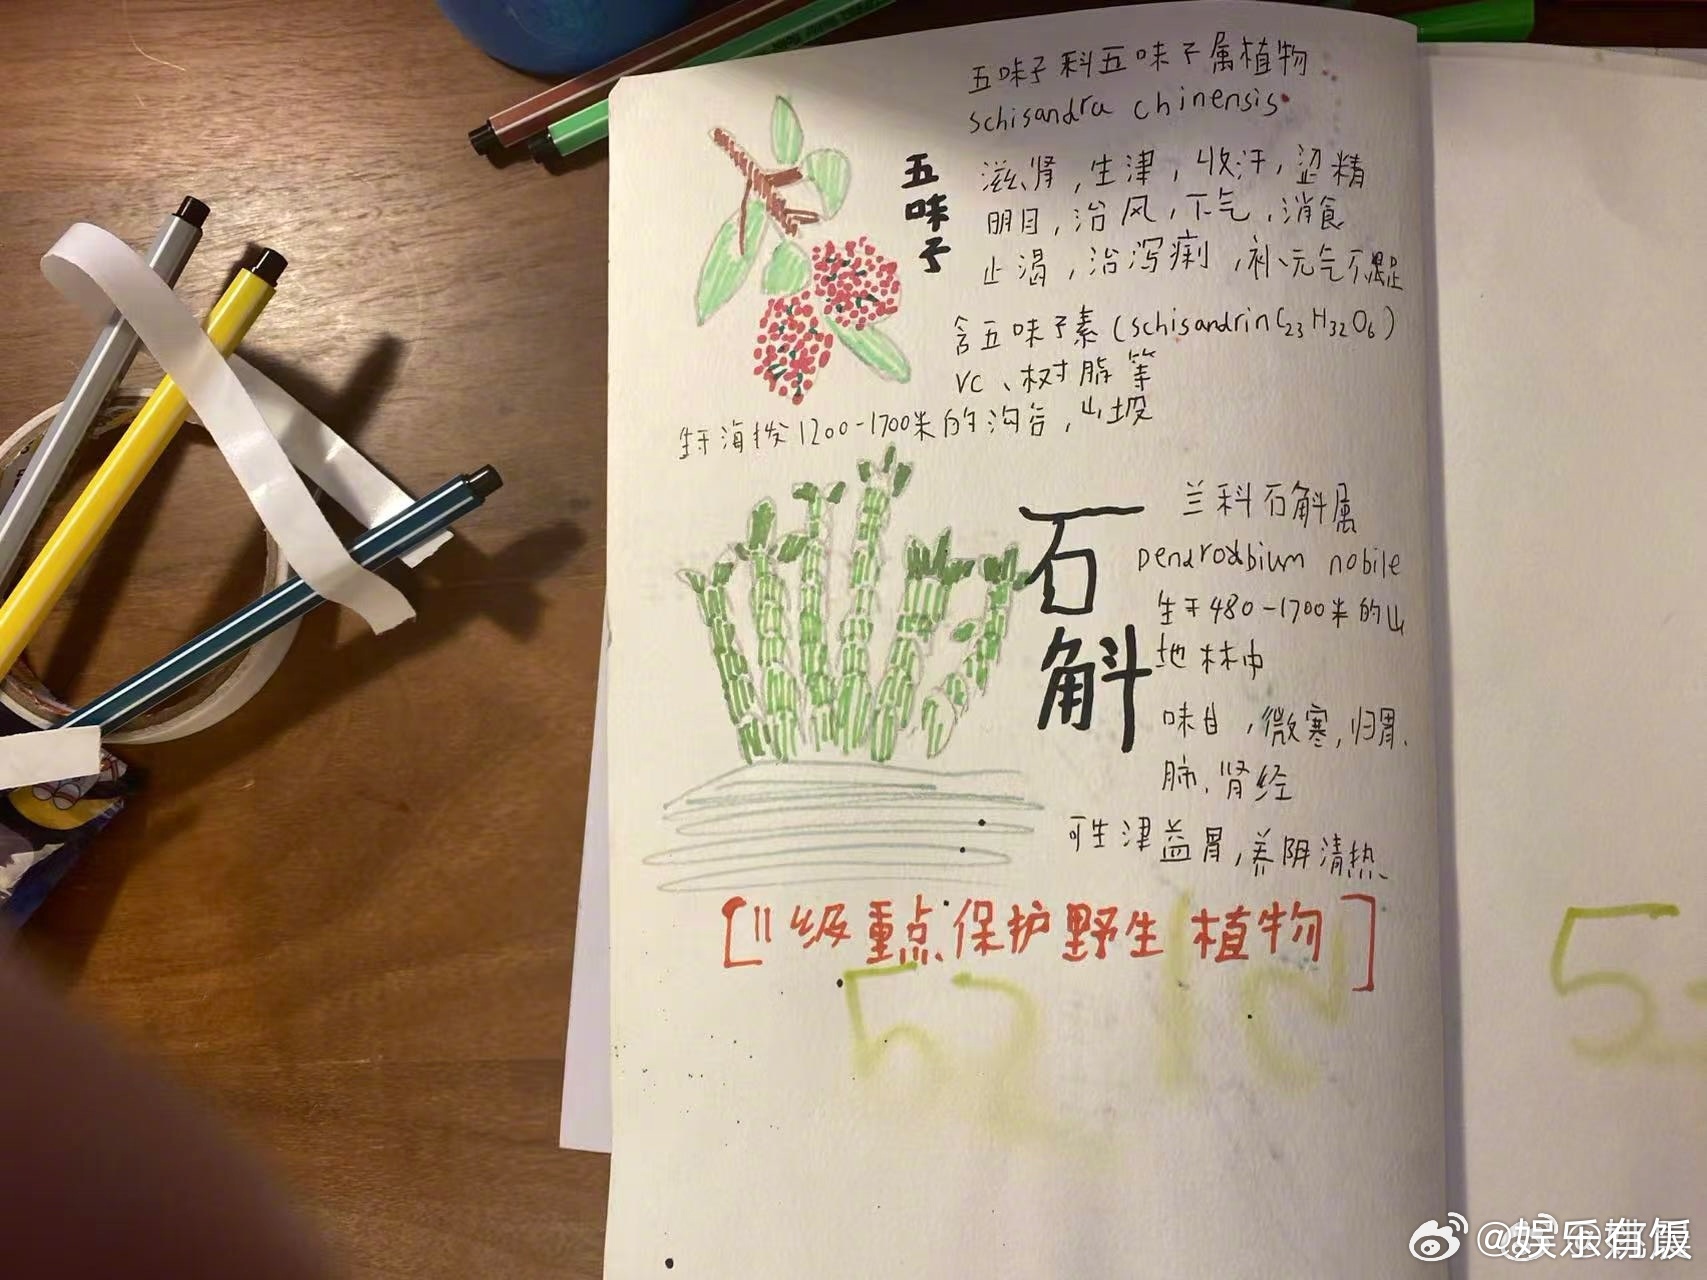 五味子科五味子属植物
schisandra chinensis
五味子
滋肾，生津，收汗，涩精
明目，治风，下气，消食
止渴，治泻痢，补元气不足
含五味子素(schisandrinC23H32O6)
VC、树脂等
生于海拔1200-1700米的沟谷，山坡
石斛
兰科石斛属
Dendrobium nobile
生于480-1700米的山
地林中
味甘，微寒，归胃、
肺、肾经
可生津益胃，养阴清热
[II级重点保护野生植物]
52
5